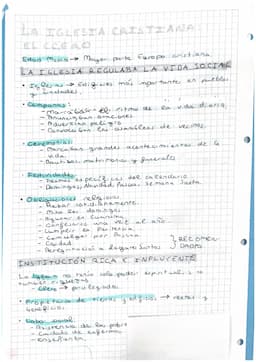 LA IGLESIA CRISTIANA
EL CLERO
Edad Media → Mayor parte Europa cristiana
LA IGLESIA REGULABA LA VIDA SOCIAL
• Iglesias → Edificios más importantes en pueblos
y ciudades.
• Campanas:
- Marcaban el ritmo de la vida diaria
- Anunciaban oraciones
- Advertían peligro
- Convocaban las asambleas de vecinos.
• Ceremonias:
- Marcaban grandes acontecimientos de la
vida
- Bautizos, matrimonios y funerales
• Festividades:
- Fechas específicas del calendario
- Domingos, Navidad, Pascua, Semana Santa
• Obligaciones religiosas
- Rezar cotidianamente.
- Misa los domingos
- Ayunar en Cuaresma
- Confesarse una vez al año
- Cumplir la Penitencia
- Comulgar por Pascua
- Caridad
- Peregrinación a lugares santos
RECOMEN-
DADO
INSTITUCIÓN RICA E INFLUYENTE
La Iglesia no tenía solo poder espiritual, sino
también riquezas
- Clero → privilegiado
- Propietaria de tierras y edificios → rentas y
beneficios.
- Labor social:
- Asistencia de los pobres
- Cuidado de enfermos
- Enseñanza